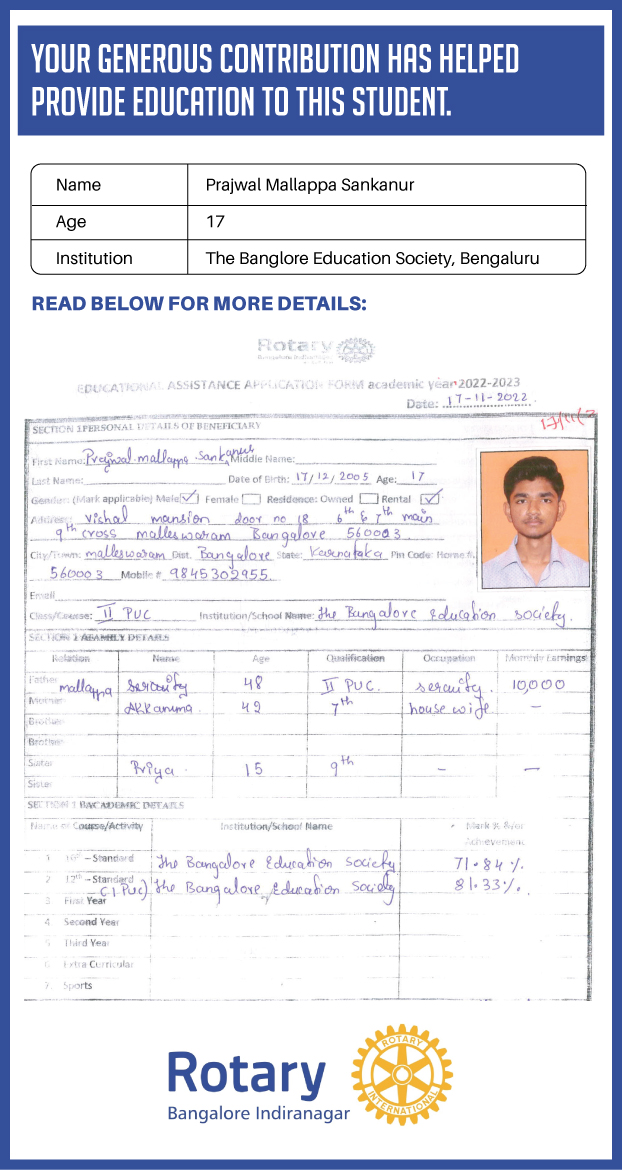 YOUR GENEROUS CONTRIBUTION HAS HELPED
PROVIDE EDUCATION TO THIS STUDENT.
Name Prajwal Mallappa Sankanur
Age 17
Institution The Banglore Education Society, Bengaluru
READ BELOW FOR MORE DETAILS:
Rotary
Bangalore Indiranagar
EDUCATIONAL ASSISTANCE APPLICATION FORM academic year 2022-2023
Date: 17-11-2022
17/11/
SECTION 1 PERSONAL DETAILS OF BENEFICIARY
First Name: Prajwal mallappa Sankanur Middle Name:
Last Name: Date of Birth: 17/12/2005 Age: 17
Gender: (Mark applicable) Male ✓ Female Residence: Owned Rental ✓
Address: vishal mansion door no 18 6th & 7th main
9th cross malleswaram Bangalore 560003
City/Town: malleswaram Dist. Bangalore State: Karnataka Pin Code:
560003 Mobile # 9845302955
Email
Class/Course: II PUC Institution/School Name: the Bangalore Education society.
SECTION 2 FAMILY DETAILS
Relation Name Age Qualification Occupation Monthly Earnings
Father mallappa 48 II PUC. 10,000
Mother Akkamma. 42 7th house wife -
Brother
Brother
Sister Priya. 15 9th - -
Sister
ACADEMIC DETAILS
Name of Course/Activity Institution/School Name Mark %
Achievement
1 10th - Standard the Bangalore Education Society 71.84 %
2 12th - Standard the Bangalore Education Society 81.33%.
(I PUC)
3 First Year
4 Second Year
5 Third Year
6 Extra Curricular
7 Sports
Rotary
Bangalore Indiranagar
ROTARY
INTERNATIONAL